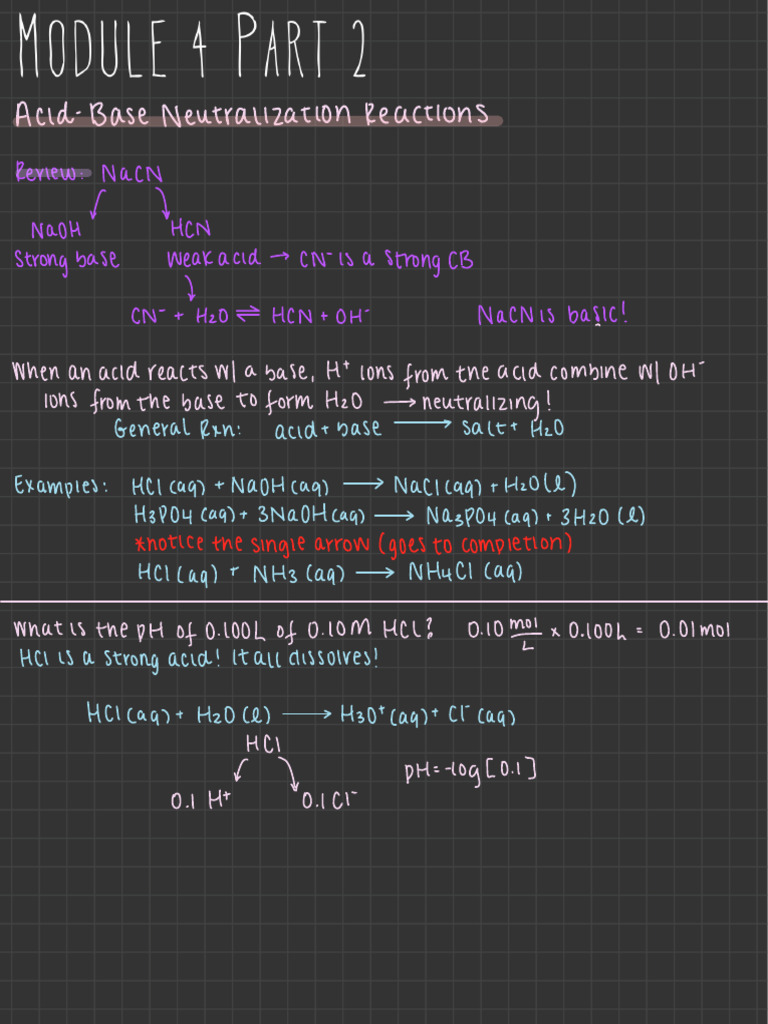 MODULE 4 PART 2
Acid-Base Neutralization Reactions
Review: NaCN
NaOH HCN
Strong base Weak acid → CN⁻ is a strong CB
CN⁻ + H₂O ⇌ HCN + OH⁻ NaCN is basic!
When an acid reacts w/ a base, H⁺ ions from the acid combine w/ OH⁻
ions from the base to form H₂O → neutralizing!
General Rxn: acid + base → salt + H₂O
Examples: HCl (aq) + NaOH (aq) → NaCl (aq) + H₂O (l)
H₃PO₄ (aq) + 3NaOH (aq) → Na₃PO₄ (aq) + 3H₂O (l)
*notice the single arrow (goes to completion)
HCl (aq) + NH₃ (aq) → NH₄Cl (aq)
What is the pH of 0.100L of 0.10M HCl? 0.10 mol/L x 0.100L = 0.01 mol
HCl is a strong acid! It all dissolves!
HCl (aq) + H₂O (l) → H₃O⁺ (aq) + Cl⁻ (aq)
HCl
pH = -log [0.1]
0.1 H⁺ 0.1 Cl⁻